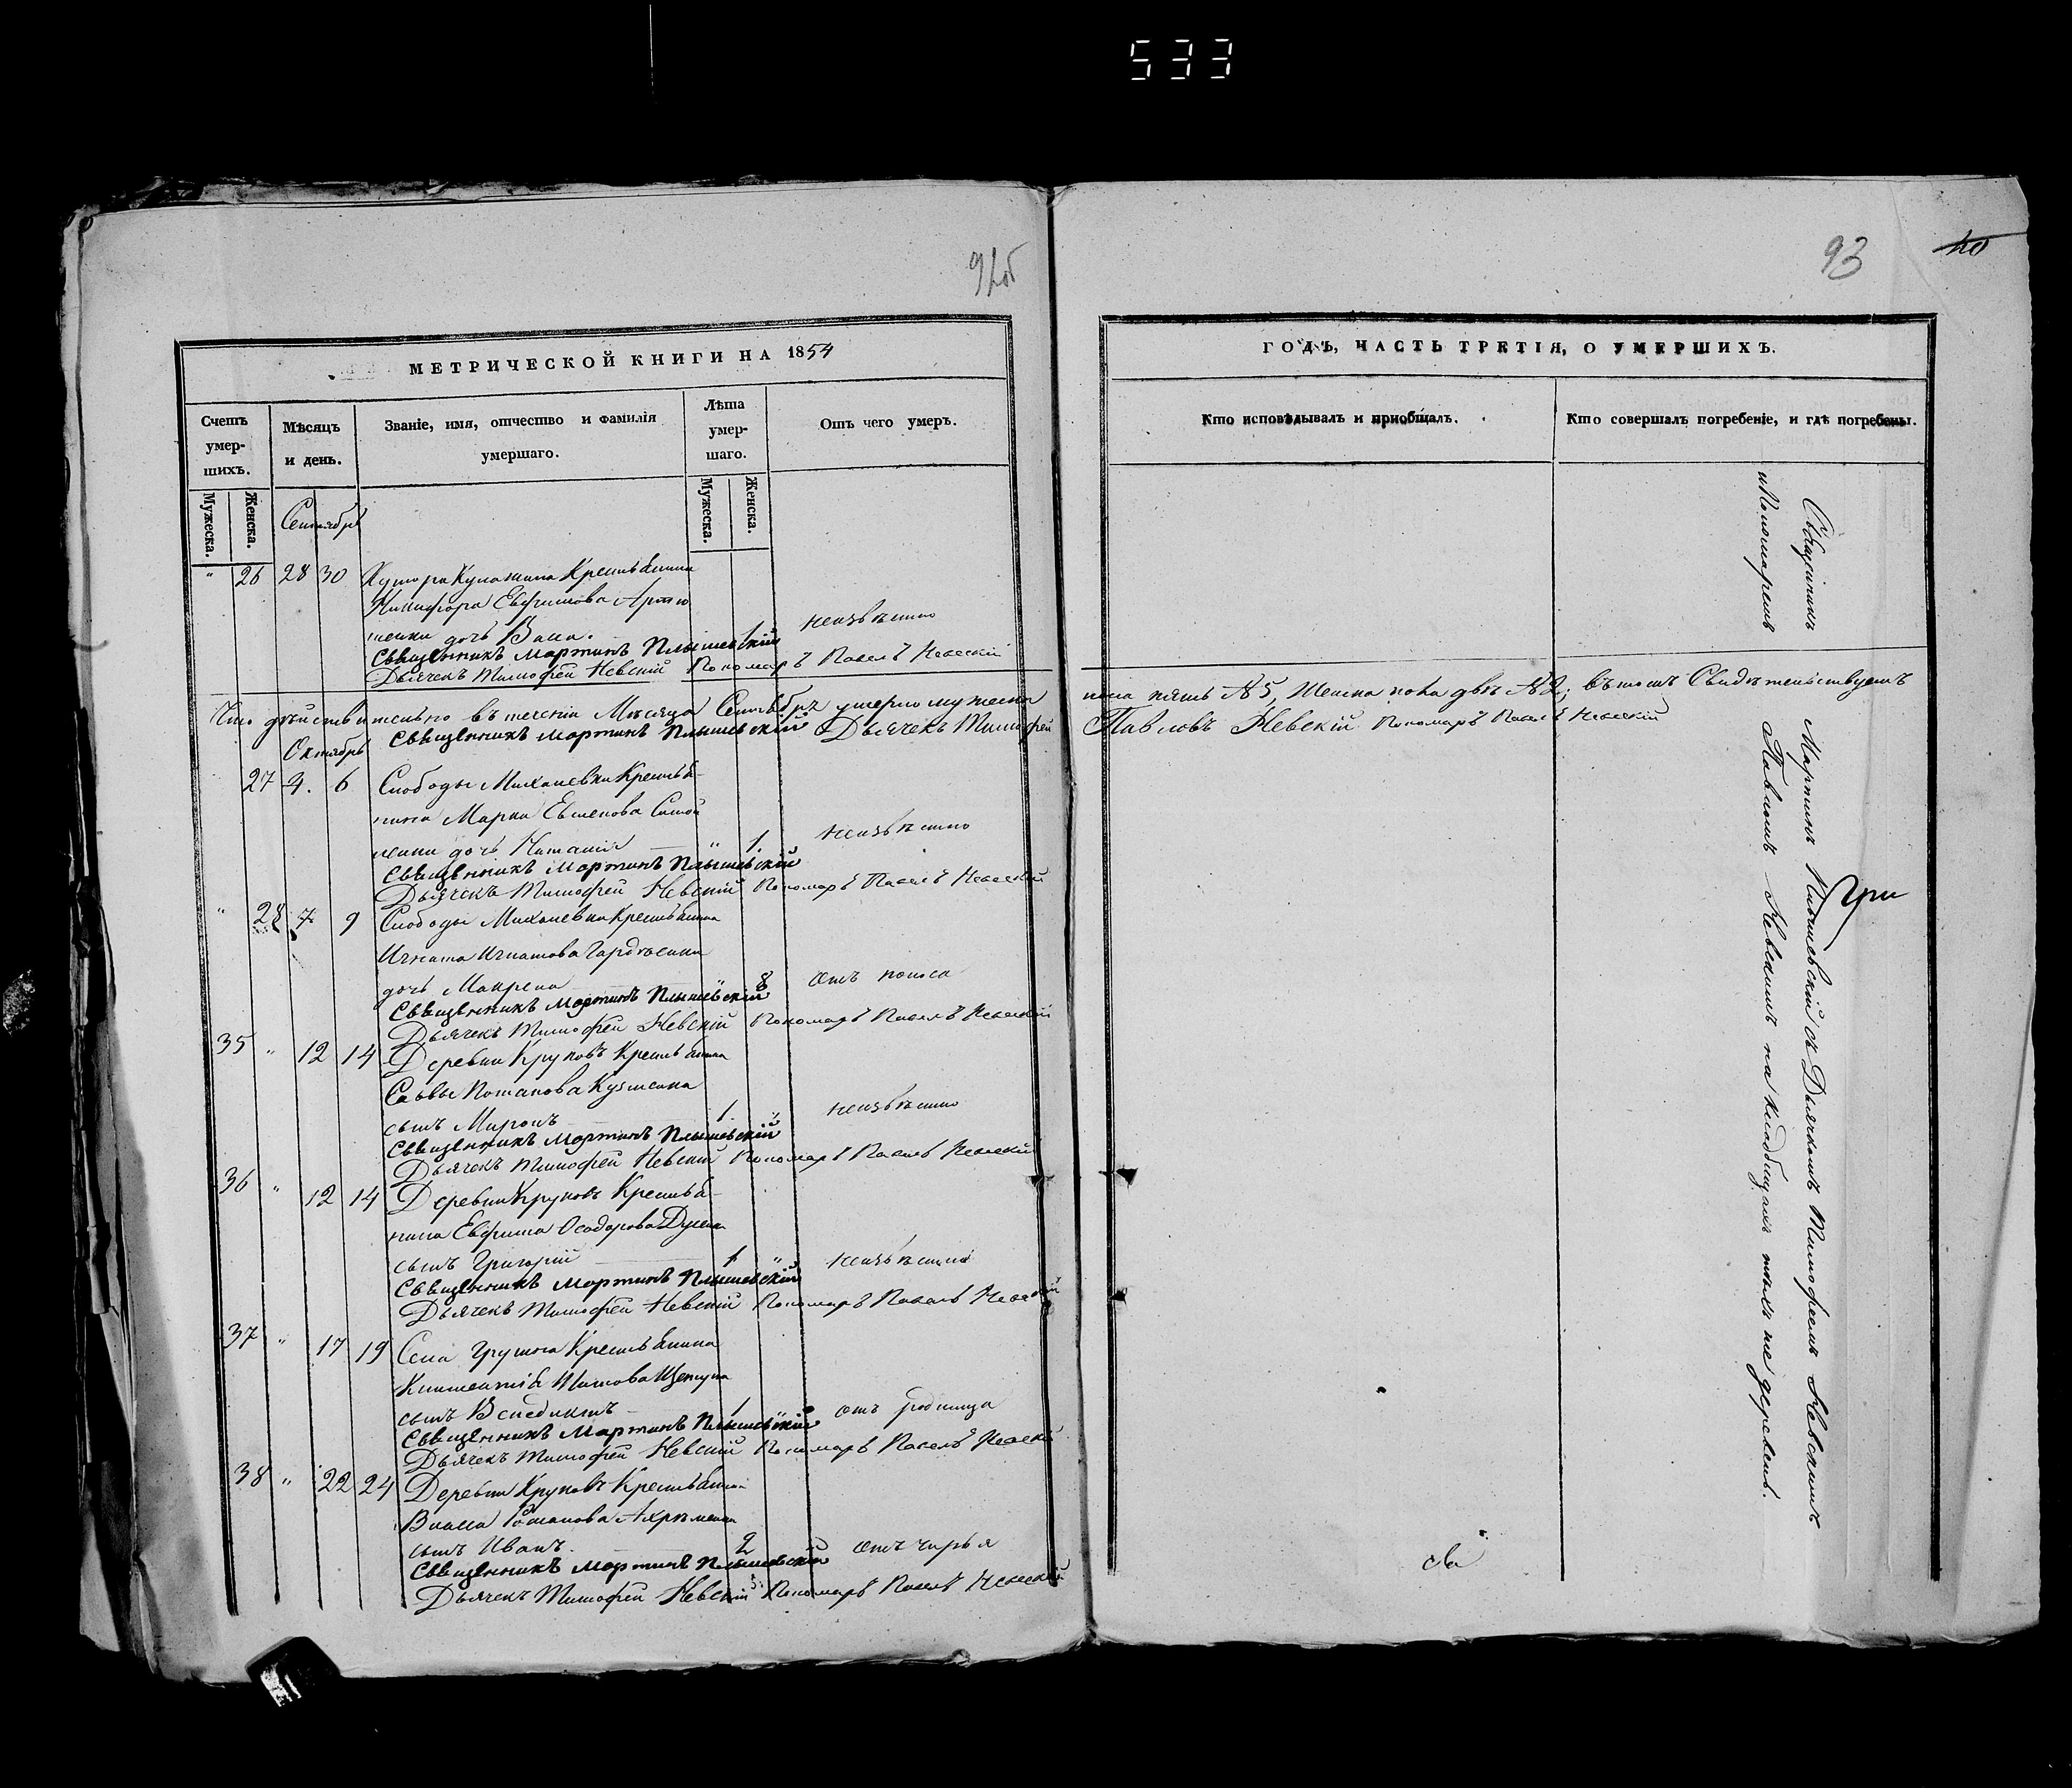 533
92об
МЕТРИЧЕСКОЙ КНИГИ НА 1854
Счетъ умер-шихъ.
Мѣсяцъ и день.
Званіе, имя, отчество и фамилія умершаго.
Лѣта умер-шаго.
Отъ чего умеръ.
Мужеска.
Женска.
Мужеска.
Женска.
Сентябрь
" 26 28 30 Хутора Крестьянина
Никифора Евфимова
дочь 1 неизвѣстно
Священникъ Мартинъ Плышевскій
Дьячекъ Тимофей Невскій Пономарь Павелъ Невскій
Что дѣйствительно въ теченіи Мѣсяца Сентября умерло мужеска
Священникъ Мартинъ Плышевскій Дьячекъ Тимофей
Октябрь
27 4. 6 Слободы Михаиевки Крестья-
нина Марка Евменова Самой
ленки дочь Наталія " 1. неизвѣстно
Священникъ Мартинъ Плышевскій
Дьячекъ Тимофей Невскій Пономарь Павелъ Невскій
" 28 7 9 Слободы Михаиевки Крестьянина
Игната Игнатова
дочь Макрена " 8 отъ поноса
Священникъ Мартинъ Плышевскій
Дьячекъ Тимофей Невскій Пономарь Павелъ Невскій
35 " 12 14 Деревни Круповъ Крестьянина
Саввы Потапова Кузменка
сынъ Миронъ 1 " неизвѣстно
Священникъ Мартинъ Плышевскій
Дьячекъ Тимофей Невскій Пономарь Павелъ Невскій
36 " 12 14 Деревни Круповъ Крестья-
нина Евфима
сынъ Григорій 1 " неизвѣстно
Священникъ Мартинъ Плышевскій
Дьячекъ Тимофей Невскій Пономарь Павелъ Невскій
37 " 17 19 Села Грузска Крестьянина
Климентія Титова
сынъ Венедиктъ 1 " отъ родимца
Священникъ Мартинъ Плышевскій
Дьячекъ Тимофей Невскій Пономарь Павелъ Невскій
38 " 22 24 Деревни Круповъ Крестьянина
Власа Романова
сынъ Иванъ 2 отъ чирья
Священникъ Мартинъ Плышевскій
Дьячекъ Тимофей Невскій Пономарь Павелъ Невскій
93
ГОДЪ, ЧАСТЬ ТРЕТІЯ, О УМЕРШИХЪ.
Кто исповѣдывалъ и приобщалъ.
Кто совершалъ погребеніе, и гдѣ погребены.
пола пять №5, Женска пола двѣ №2; въ томъ Свидѣтельствуетъ
Павловъ Невскій Пономарь Павелъ Невскій
Священникъ Мартинъ Плышевскій съ Дьячкомъ Тимофеемъ Невскимъ
и Пономаремъ Павломъ Невскимъ на кладбищахъ тѣхъ же деревень.